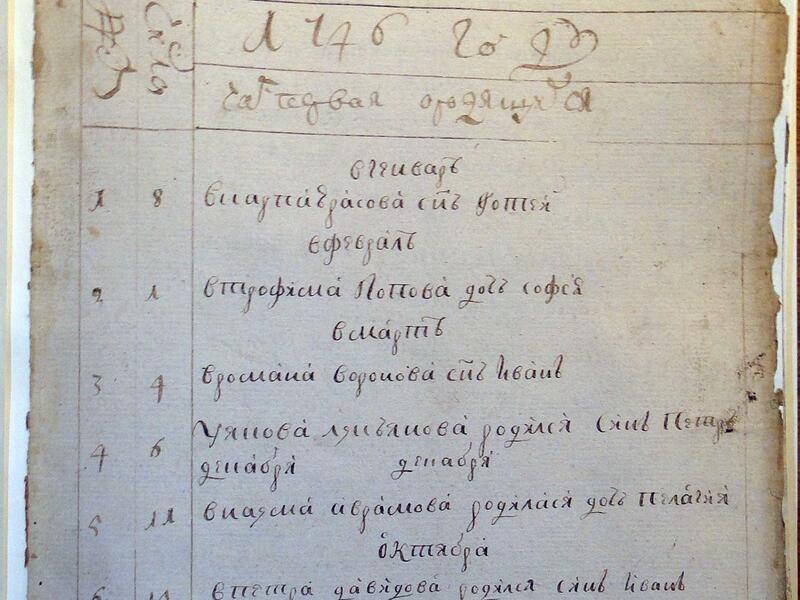 1746 году
часть первая ородящихся
в генварѣ
1 8 внаума власова снъ Фотей
в феврале
2 1 в трофима Попова дочь софея
в марте
3 4 в романа воронова снъ Иванъ
4 6 у якова лукьянова родился сынъ Петръ
декабря декабря
5 11 внаума аврамова родилася дочь Пелагия
октября
6 в петра давыдова родился сынъ Иванъ